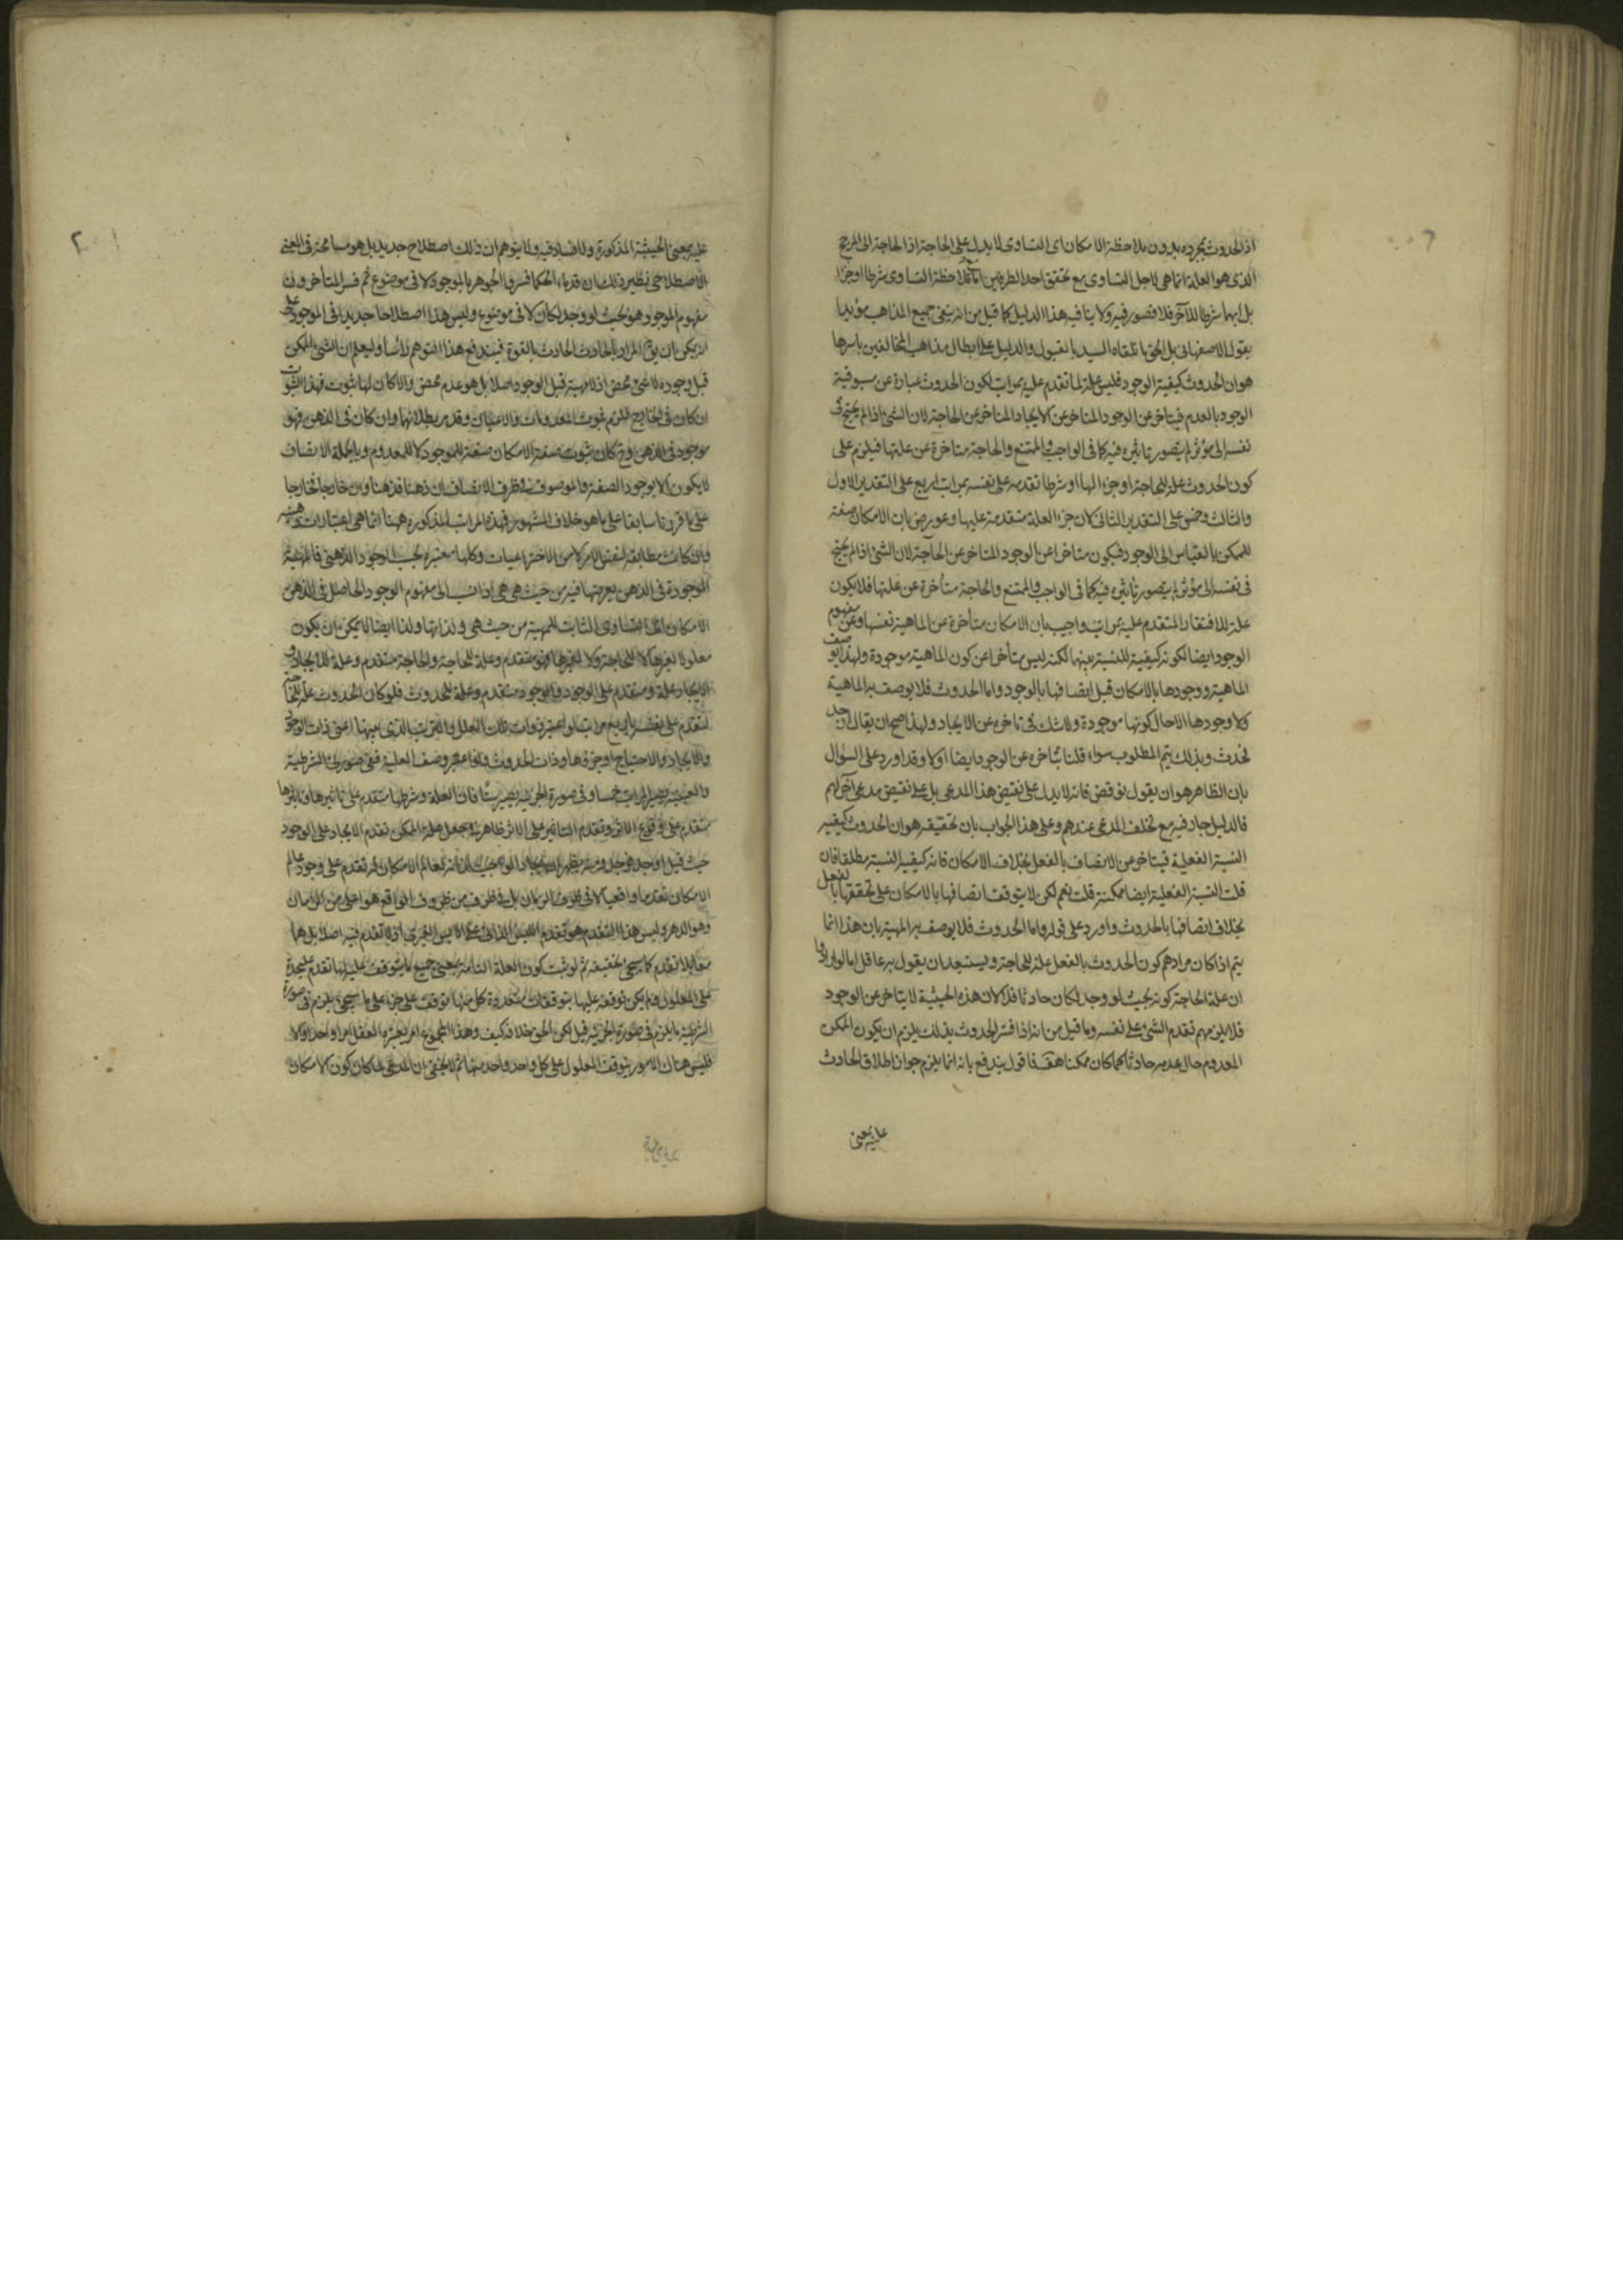 اذ الحدوث بمجرده بدون ملاحظة الامكان اى التساوى لا يدل على الحاجة اذ الحاجة الى المرجح
الذى هو العلة انما هى لاجل التساوى مع تحقق احد الطرفين ملاحظة التساوى شرطا او جزا
بل ايهما شرط للآخر فلا قصور فيه ولا ينافيه هذا الدليل كما قيل من انه ينفى جميع المذاهب مؤيدا
بقول الاصفهانى بل الحق ما تلقاه السيد بالقبول والدليل على ابطال مذاهب المخالفين باسرها
هو ان الحدوث كيفية الوجود فليس علة لما تقدم عليه بمراتب لكون الحدوث عبارة عن مسبوقية
الوجود بالعدم فيتاخر عن الوجود المتاخر عن الايجاد المتاخر عن الحاجة لان الشئ اذا لم يحتج فى
نفسه الى مؤثر لم يتصور تاثيره فيه كما فى الواجب والممتنع والحاجة متاخرة عن علتها فيلزم على
كون الحدوث علة للحاجة او جزا لها او شرطا تقدمه على نفسه بمراتب اربع على التقدير الاول
والثالث وخمس على التقدير الثانى لان جزء العلة متقدمة عليها وعورض بان الامكان صفة
للممكن بالقياس الى الوجود فيكون متاخرا عن الوجود المتاخر عن الحاجة لان الشئ اذا لم يحتج
فى نفسه الى مؤثر لم يتصور تاثيره فيه كما فى الواجب والممتنع والحاجة متأخرة عن علتها فلا يكون
علة للافتقار المتقدم عليه بمراتب واجيب بان الامكان متأخرة عن الماهية نفسها وعن مفهوم
الوجود ايضا لكونه كيفية للنسبة بينهما لكنه ليس متأخرا عن كون الماهية موجودة ولهذا يوصف
الماهية ووجودها بالامكان قبل اتصافها بالوجود واما الحدوث فلا يوصف به الماهية
ولا وجودها الا حال كونها موجودة ولا شك فى تاخره عن الايجاد ولهذا صح ان يقال اوجد
فحدث وبذلك يتم المطلوب سواء قلنا بتاخره عن الوجود ايضا اولا وقد اورد على السؤال
بان الظاهر هو ان يقول نوقض فانه لا يدل على نقيض هذا المدعى بل على نقيض مدعى آخر لهم
فالدليل جار فيه مع تخلف المدعى عندهم وعلى هذا الجواب بان تحقيقه هو ان الحدوث كيفية
النسبة الفعلية فيتاخر عن الاتصاف بالفعل بخلاف الامكان فانه كيفية النسبة مطلقا فان
قلت النسبة الفعلية ايضا ممكنة قلت نعم لكن لا يتوقف اتصافها بالامكان على تحققها بالفعل
بخلاف اتصافها بالحدوث واورد على قوله واما الحدوث فلا يوصف به المهية بان هذا انما
يتم اذا كان مرادهم كون الحدوث بالفعل علة للحاجة ويستبعد ان يقول به عاقل اما لو ارادوا
ان علة الحاجة كونه بحيث لو وجد لكان حادثا فذلك لان هذه الحيثية لا يتاخر عن الوجود
فلا يلزمهم تقدم الشئ على نفسه وما قيل من انه اذا فسر الحدوث بذلك يلزم ان يكون الممكن
المعدوم حال عدمه حادثا كما كان ممكنا هف فاقول يندفع بانه انما يلزم جواز اطلاق الحادث
عليه بمعنى
عليه بمعنى الحيثية المذكورة ولا فساد فيه ولا يتوهم ان ذلك اصطلاح جديد بل هو مسامحة فى المعنى
الاصطلاحى نظير ذلك ان قدماء الحكما فسروا الجوهر بالموجود لا فى موضوع ثم فسر المتأخرون
مفهوم الموجود هو بحيث لو وجد لكان لا فى موضوع وليس هذا اصطلاحا جديدا فى الموجود على
انه يمكن ان يق المراد بالحادث الحادث بالقوة فيندفع هذا التوهم رأسا وليعلم ان الشئ الممكن
قبل وجوده لا شئ محض اذ لا مهية قبل الوجود اصلا بل هو عدم محض والا كان لها ثبوت فهذا الثبوت
ان كان فى الخارج فيلزم ثبوت المعدومات فى الاعيان وقد مر بطلانها وان كان فى الذهن فهو
موجود فى الذهن وح كان ثبوت صفة الامكان صفة للموجود لا للمعدوم وبالجملة الاتصاف
لا يكون الا بوجود الصفة والموصوف فى ظرف الاتصاف ان ذهنا فذهنا وان خارجا فخارجا
على ما قررنا سابقا على ما هو خلاف المشهور فهذه المراتب المذكورة ههنا انما هى اعتبارات ذهنية
وان كانت مطابقة لنفس الامر لا من الاختراعيات وكلها معتبرة بحسب الوجود الذهنى فالمهية
الموجودة فى الذهن يعرضها فيه من حيث هى هى اذا نسب الى مفهوم الوجود الحاصل فى الذهن
الامكان اى التساوى الثابت للمهية من حيث هى ولذاتها ولذا ايضا لا يمكن ان يكون
معلولا لغيرها لا للحاجة ولا لغيرها فهو متقدم وعلة للحاجة والحاجة متقدم وعلة للايجاد و
الايجاد علة ومتقدم على الوجود والوجود متقدم وعلة للحدوث فلو كان الحدوث علة للحاجة
لتقدم على نفسه باربع مراتب لو اعتبر ذوات تلك العلل والترتيب الذى بينها اعنى ذات الوجود
والايجاد والاحتياج او جزؤها وذات الحدوث ولو اعتبر وصف العلية ففى صورتى الشرطية
والعينية يصير المراتب خمسا وفى صورة الجزئية يصير ستا فان العلة وشرطها متقدم على تاثيرها وتاثيرها
متقدم على وقوع الاثر وتقدم التاثير على الاثر ظاهر وجعل علة الممكن تقدم الايجاد على الوجود
حيث قيل اوجد فوجد
الامكان تقدما واقعيا لا فى ظرف الزمان بل فى ظرف من ظروف الواقع هو اعلى من الزمان
وهو الدهر وليس هذا التقدم هو تقدم الليس الذاتى على الايس الغيرى اذ لا تقدم فيه اصلا بل هما
معا بلا تقدم كما سيجئ تحقيقه ثم لو ثبت كون العلة التامة بمعنى جميع ما يتوقف عليه لها تقدم
على المعلول ولم يكن توقفه عليها بتوقفات متعددة كل منها توقف على جزء على ما سيجئ يلزم فى صورة
الشرطية ما يلزم فى صورة الجزئية قيل لكن الحق خلافه كيف وهذا المجموع امر يعتبره العقل امرا واحدا والا
فليس هناك الا امور يتوقف المعلول على كل واحد واحد منها ثم لا يخفى ان المدعى لما كان كون الامكان